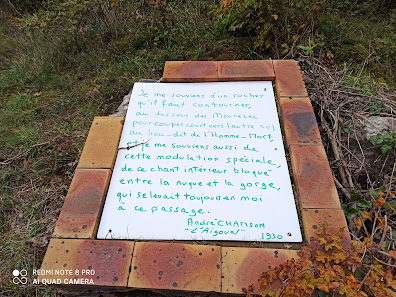 Je me souviens d'un rocher
qu'il faut contourner,
au dessus des
pour couper court vers l'autre col
au lieu-dit de l'Homme-Mort,
et je me souviens aussi de
cette modulation spéciale,
de ce chant intérieur bloqué
entre la nuque et la gorge,
qui se levait toujours en moi
à ce passage.
André CHAMSON
"L'Aigoual"
1930
REDMI NOTE 8 PRO
AI QUAD CAMERA